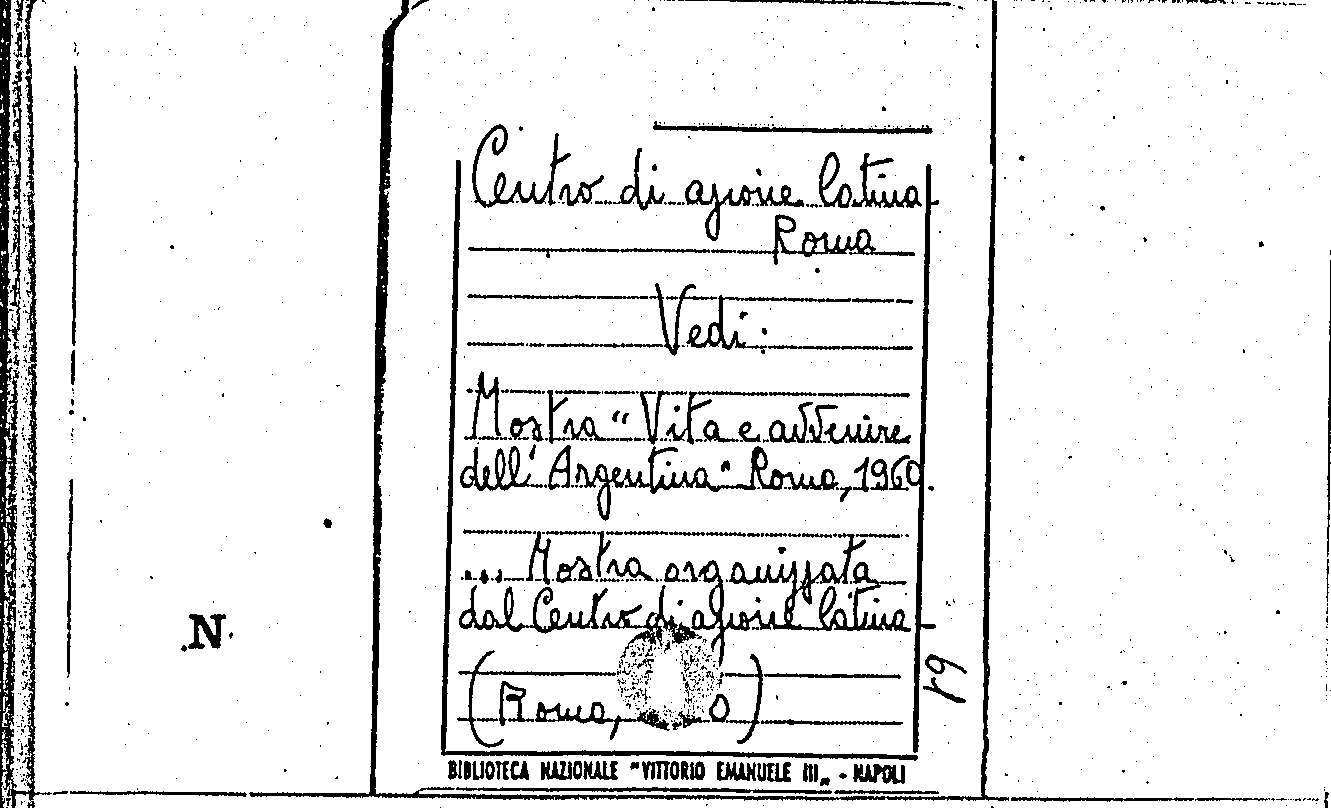 Centro di azione latina -
Roma
Vedi:
Mostra "Vita e avvenire
dell'Argentina" Roma, 1960.
... Mostra organizzata
dal Centro di azione latina -
(Roma, 0)
BIBLIOTECA NAZIONALE "VITTORIO EMANUELE III„ - NAPOLI
.N.